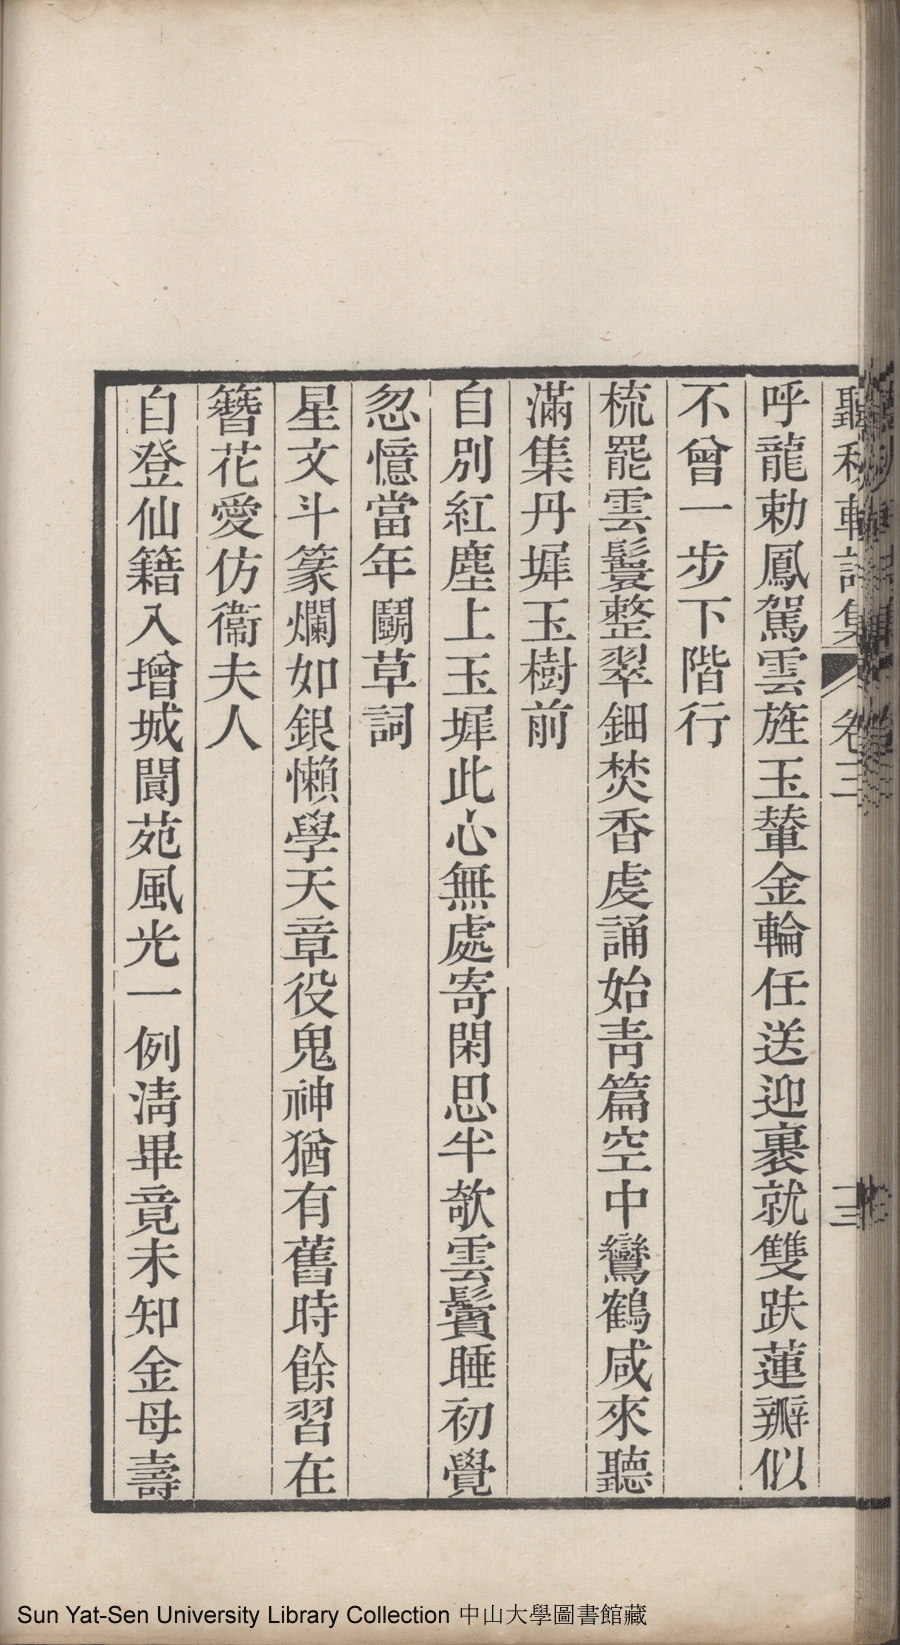 聽秋軒詩集 卷三 三
呼龍勅鳳駕雲旌玉輦金輪任送迎裹就雙趺蓮瓣似
不曾一步下階行
梳罷雲鬟整翠鈿焚香虔誦始青篇空中鸞鶴咸來聽
滿集丹墀玉樹前
自別紅塵上玉墀此心無處寄閑思半欹雲鬢睡初覺
忽憶當年鬭草詞
星文斗篆爛如銀懶學天章役鬼神猶有舊時餘習在
簪花愛仿衞夫人
自登仙籍入增城閬苑風光一例淸畢竟未知金母壽
Sun Yat-Sen University Library Collection 中山大學圖書館藏